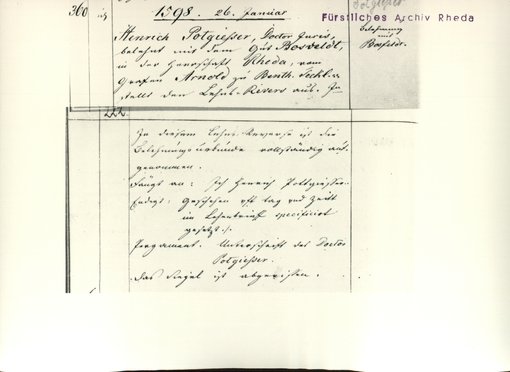 360
1598. 26. Januar
Fürstliches Archiv Rheda
Henrich Potgießer, Doctor Juris,
belehnt mit dem Gut Bosveldt,
in der Herrschaft Rheda, vom
Grafen Arnold zu Benth. Tecklb.
stellt den Lehns-Revers aus. In
Potgießer
Belehnung
mit
Bosfeldt.
222.
In diesem Lehns-Reverse ist die
Belehnungsurkunde vollständig auf-
genommen.
Fängt an: Ich Henrich Pottgiesser.
Endigt: Geschehen uff tag vnd Zeitt
im Lehenbrief specificirt
gesetzt.
Pergament. Unterschrift des Doctor
Potgießer.
Das Siegel ist abgerissen.